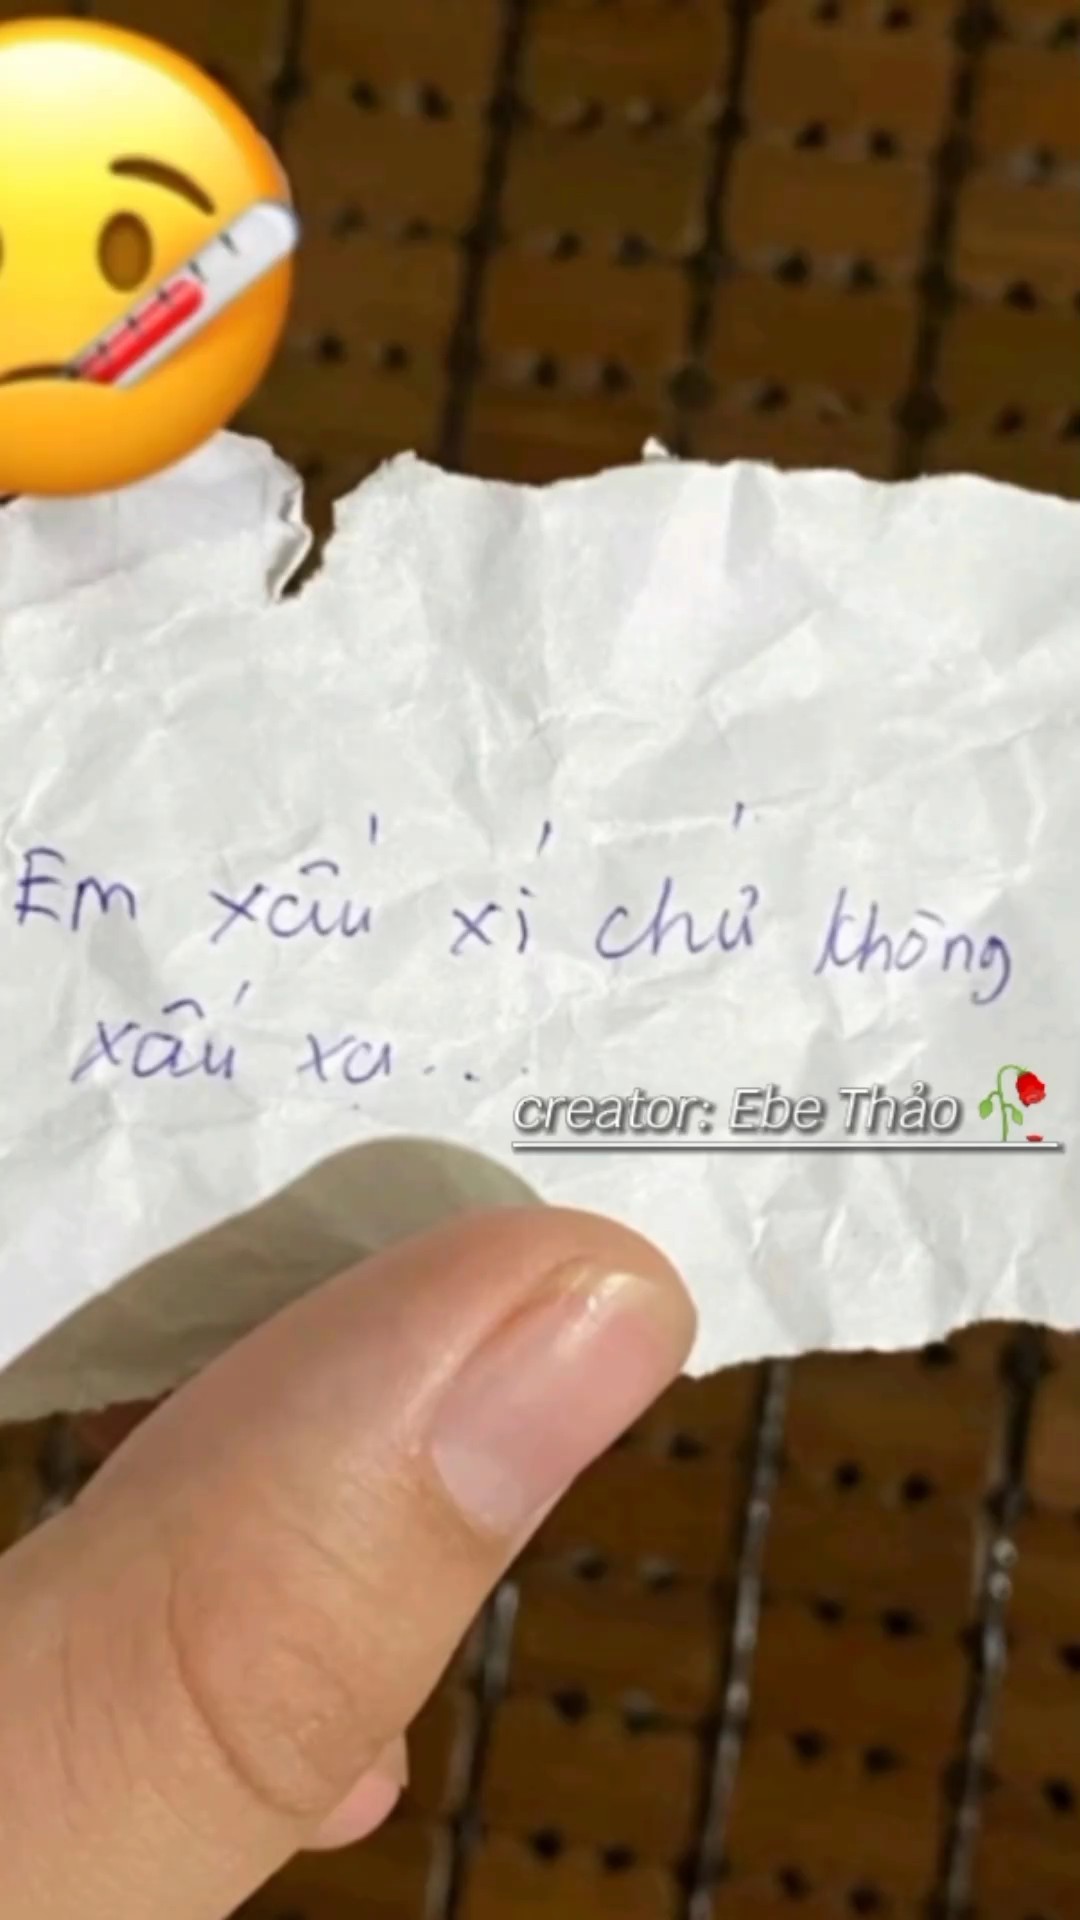 Em xấu xí chứ không
xấu xa...
creator: Ebe Thảo 🥀